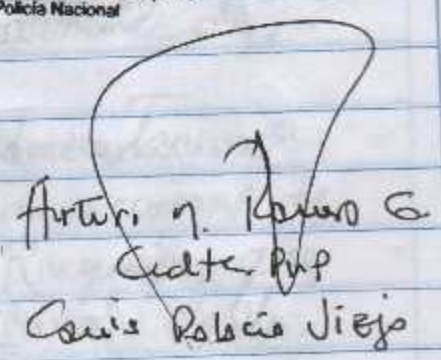 Policía Nacional
Arturo M. Romero G.
Cmdte. PNP
Comis Palacio Viejo